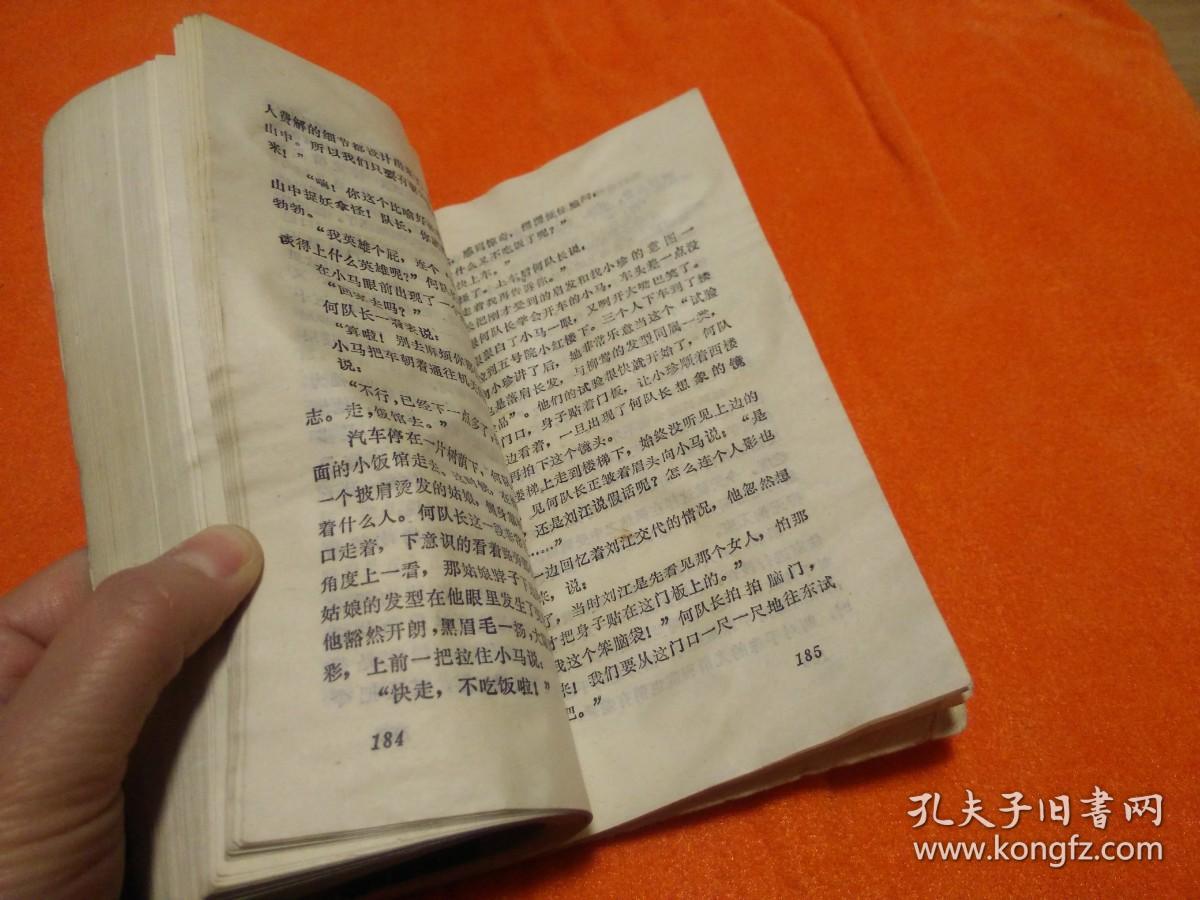 人费解的细节都设计
山中。所以我们只要有
来！”
“嗬！你这个比喻
山中捉妖拿怪！队长，你
勃勃。
“我英雄个屁，连个
谈得上什么英雄呢？”何
在小马眼前出现了一
去吗？”
何队长一看表说：
“算啦！别去麻烦你
小马把车朝着通往机
说：
“不行，已经下一点多了
志。走，饭馆去。”
汽车停在一片树荫下，何
面的小饭馆走去。这时候，在
一个披肩烫发的姑娘，侧身
着什么人。何队长这一
口走着，下意识的看着
角度上一看，那姑娘脖子下
姑娘的发型在他眼里发生了
他豁然开朗，黑眉毛一扬，大
彩，上前一把拉住小马说：
“快走，不吃饭啦！”
184
，感到惊奇，
什么又不吃饭了呢？”
快上车。”上车后何队长说，
着我再告诉你。”
把刚才受到的启发和找小珍的意图一
何队长学会开车的小马，车头是一点没
白了小马一眼，又咧开大嘴巴笑了。
到五号院小红楼下。三个人下车到了楼
小珍讲了后，她非常乐意当这个“试验
是落肩长发，与柳莺的发型同属一类，
品”。他们的试验很快就开始了，何队
门口，身子贴着门板，让小珍顺着西楼
边看着，一旦出现了何队长想象的镜
再拍下这个镜头。
楼梯上走到楼梯下，始终没听见上边的
见何队长正皱着眉头向小马说：“是
还是刘江说假话呢？怎么连个人影也
……”
一边回忆着刘江交代的情况，他忽然想
来，说：
了，当时刘江是先看见那个女人，怕那
才把身子贴在这门板上的。”
我这个笨脑袋！”何队长拍拍脑门，
来！我们要从这门口一尺一尺地往东试
吧。”
185
孔夫子旧书网
www.kongfz.com